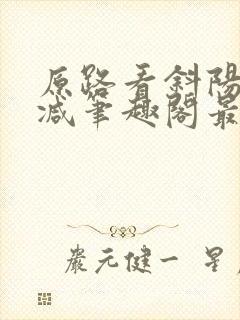 原路看斜陽
減筆趣閣最
嚴元健一 星